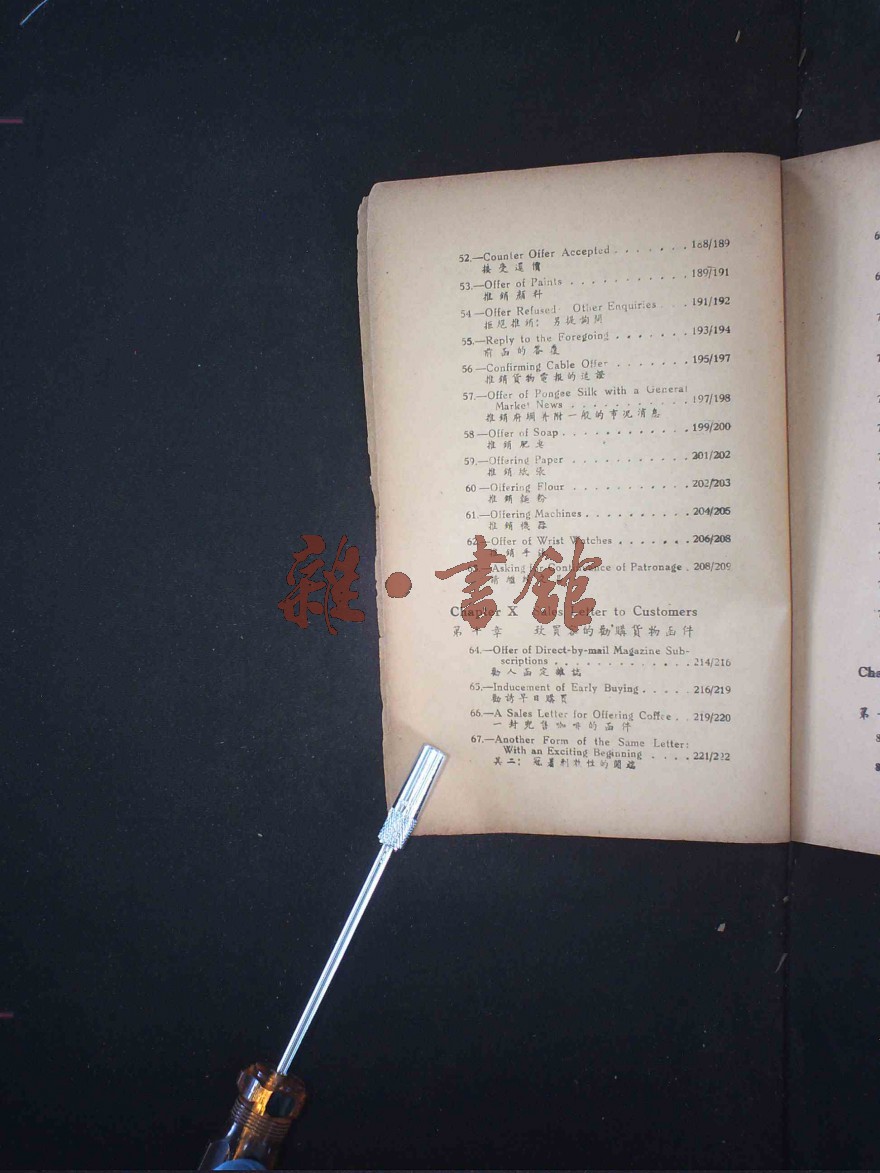 52.—Counter Offer Accepted . . . . . . . 168/189
接受還價
53.—Offer of Paints . . . . . . . . . . . 189/191
推銷顏料
54—Offer Refused: Other Enquiries . . . 191/192
拒絕推銷：另提詢問
55.—Reply to the Foregoing . . . . . . . 193/194
前函的答覆
56—Confirming Cable Offer . . . . . . . 195/197
推銷貨物電報的證
57.—Offer of Pongee Silk with a General
Market News . . . . . . . . . . . 197/198
推銷府綢并附一般的市況消息
58—Offer of Soap . . . . . . . . . . . . 199/200
推銷肥皂
59.—Offering Paper . . . . . . . . . . . 201/202
推銷紙張
60—Offering Flour . . . . . . . . . . . 202/203
推銷麵粉
61.—Offering Machines . . . . . . . . . . 204/205
推銷機器
62—Offer of Wrist Watches . . . . . . . 206/208
推銷手
63.—Asking for Continuence of Patronage . 208/209
請繼
雜·書館
Chapter X Sales Letter to Customers
第十章 致買的勸購貨物函件
64.—Offer of Direct-by-mail Magazine Sub-
scriptions . . . . . . . . . . . . . 214/216
勸人函定雜誌
65.—Inducement of Early Buying . . . . . 216/219
勸誘早日購買
66.—A Sales Letter for Offering Coffee . . 219/220
一封兜售咖啡的函件
67.—Another Form of the Same Letter:
With an Exciting Beginning . . . . 221/222
其二：冠着刺激性的開端
Cha
第